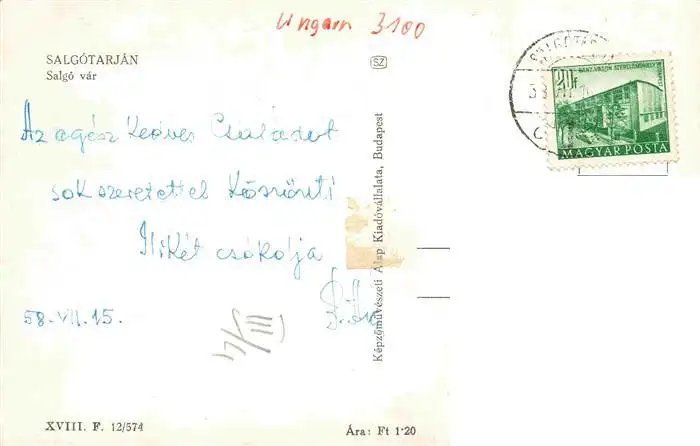 Ungarn 3100
SALGÓTARJÁN
Salgó vár
SZ
SALGÓTARJÁN
20f
GANZ VAGON SZERELŐMŰHELY
BUDAPEST
MAGYAR POSTA
Az egész Kedves Családot
sok szeretettel Köszönti
Ilikét csókolja
58. VII. 15.
III/4
Képzőművészeti Alap Kiadóvállalata, Budapest
XVIII. F. 12/574
Ára: Ft 1·20